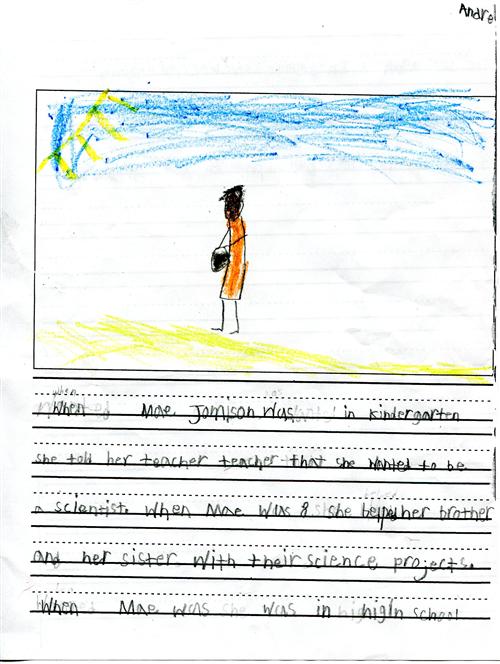 Andre
When Mae Jomison was in kindergarten
she told her teacher teacher that she wanted to be
a scientist. When Mae was 8 she helped her brother
and her sister with their science projects.
When Mae was she was in high school